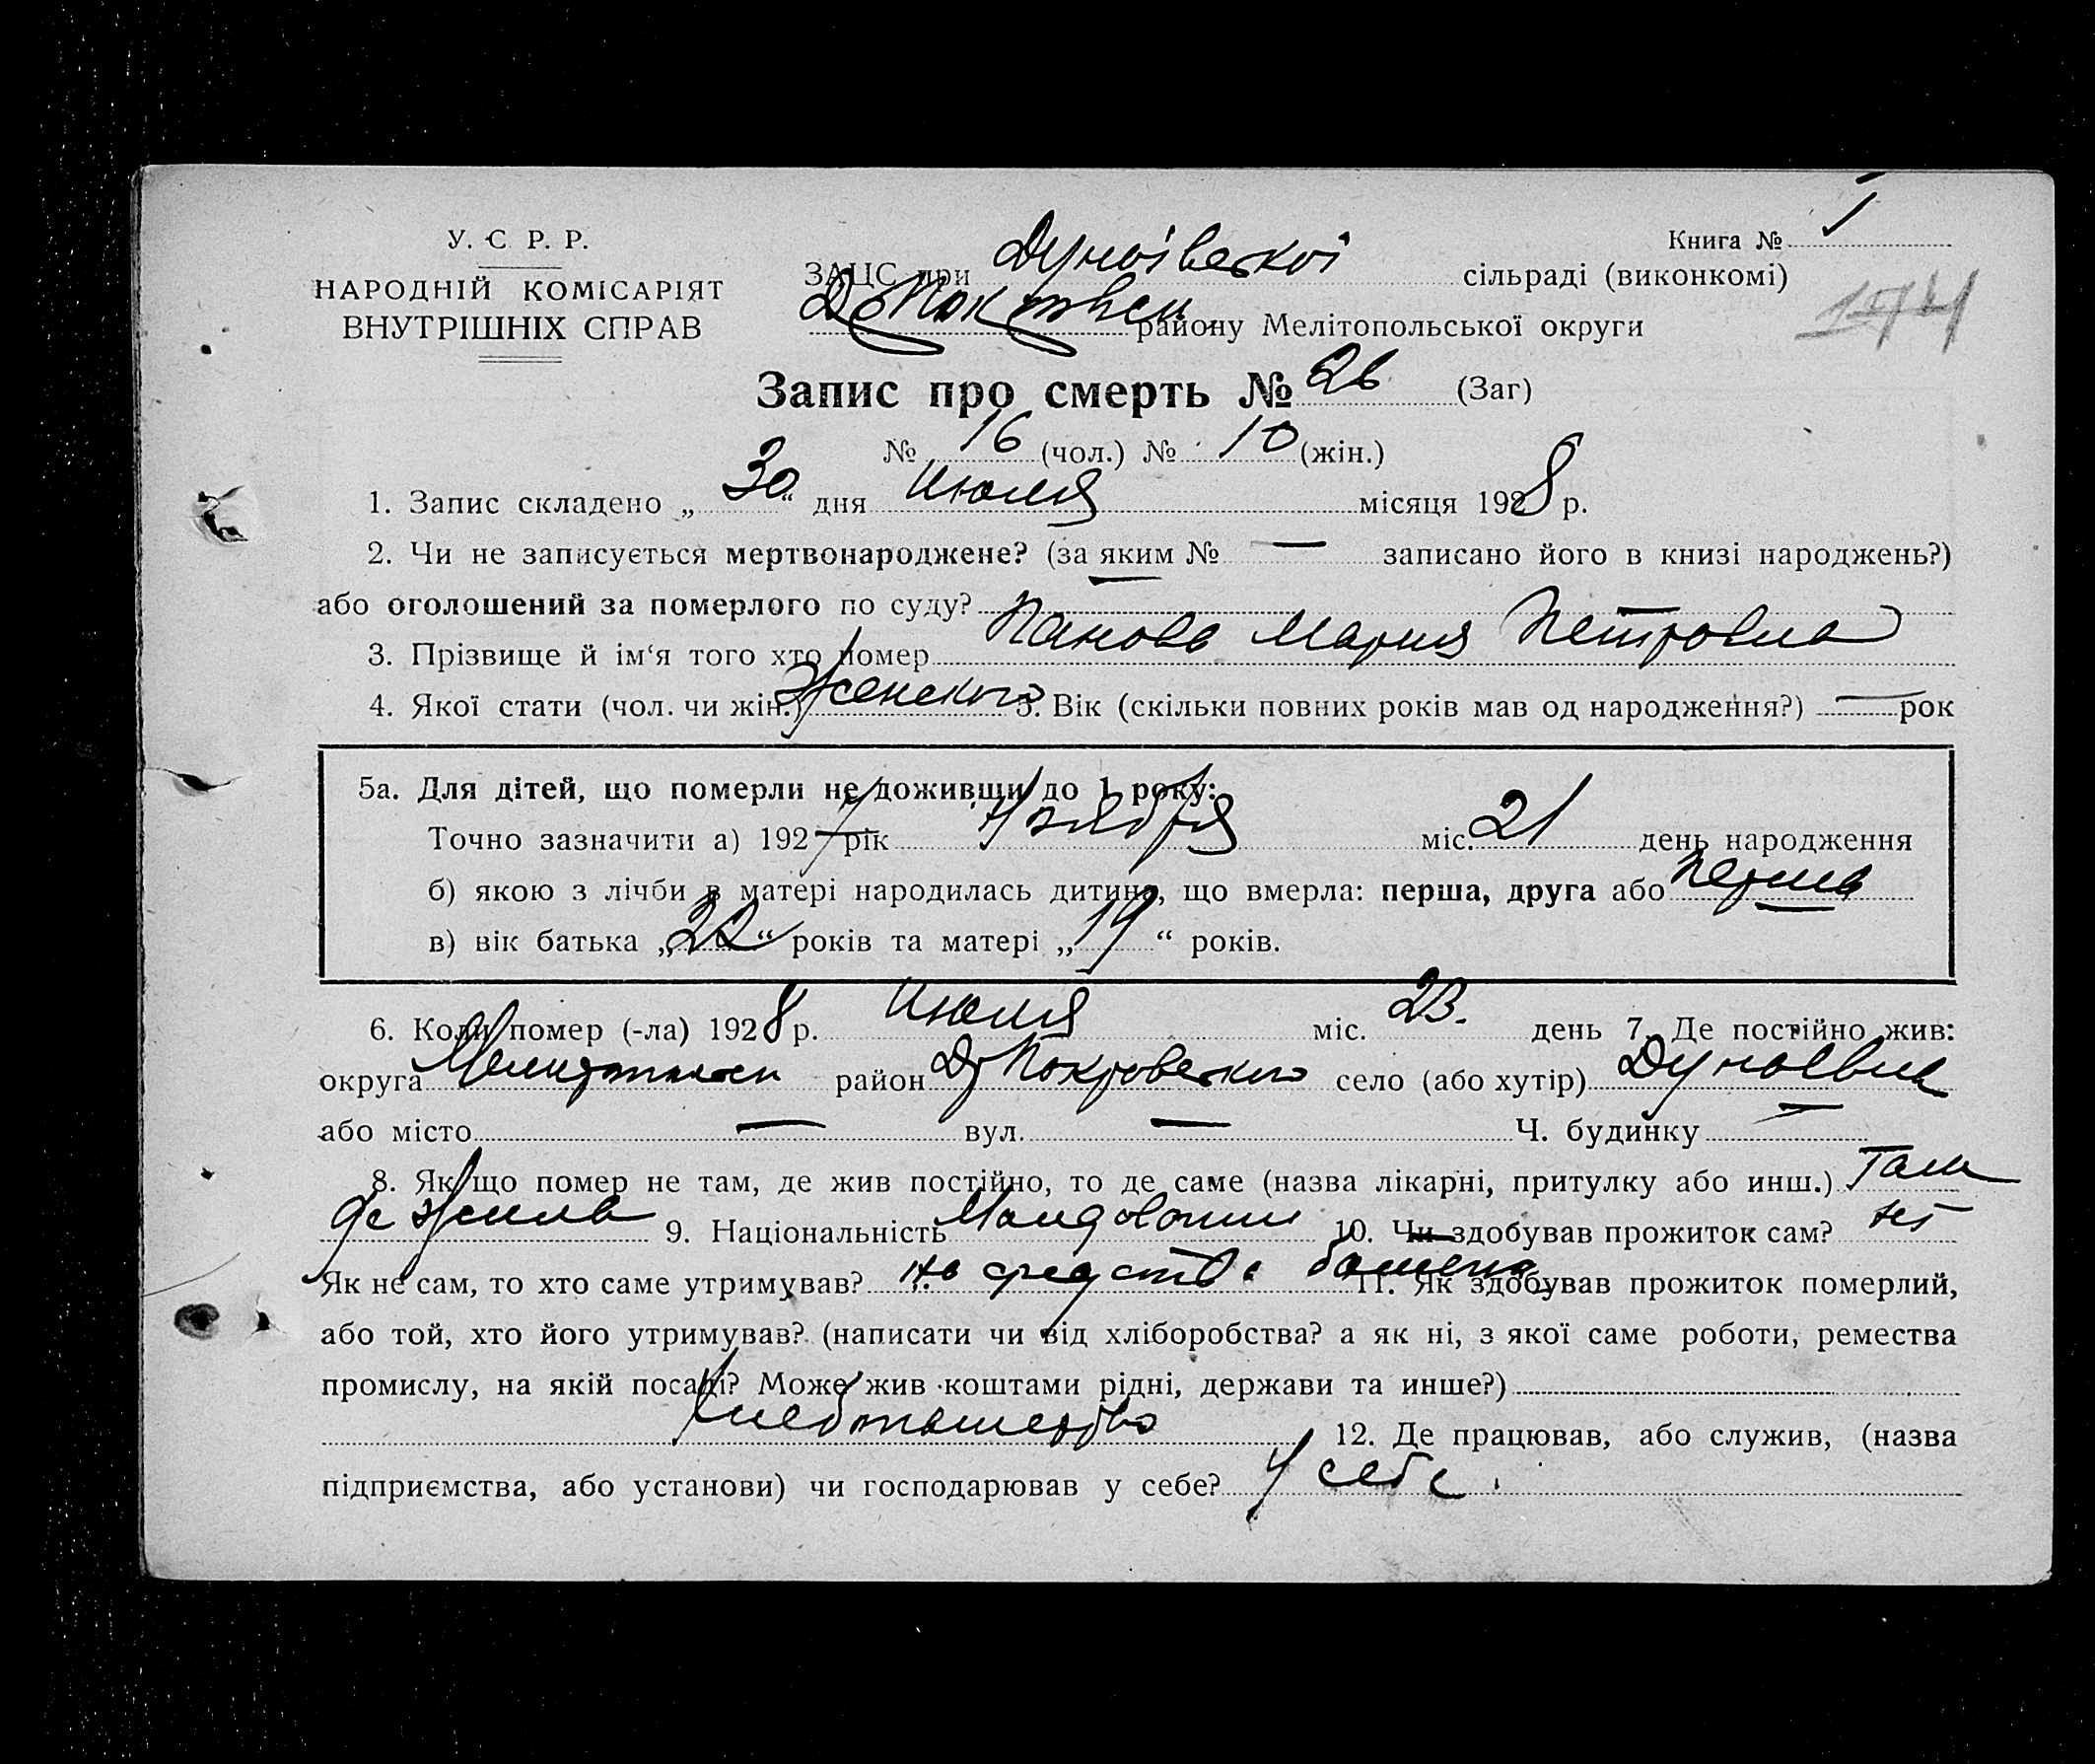 У. С Р. Р.
НАРОДНІЙ КОМІСАРІЯТ
ВНУТРІШНІХ СПРАВ
Книга № I
ЗАЦС при Дунаївскої сільраді (виконкомі)
району Мелітопольської округи
174
Запис про смерть № 26 (Заг)
№ 16 (чол.) № 10 (жін.)
1. Запис складено „30“ дня Июля місяця 1928 р.
2. Чи не записується мертвонароджене? (за яким № — записано його в книзі народжень?)
або оголошений за померлого по суду? —
3. Прізвище й ім‘я того хто помер Панова Мария Петровна
4. Якої стати (чол. чи жін.) Женского 5. Вік (скільки повних років мав од народження?) — рок
5а. Для дітей, що померли не доживши до 1 року:
Точно зазначити а) 1927 рік Ноября міс. 21 день народження
б) якою з лічби в матері народилась дитина, що вмерла: перша, друга або перша
в) вік батька „22“ років та матері „19“ років.
6. Коли помер (-ла) 1928 р. Июля міс. 23. день 7. Де постійно жив:
округа район Покровского село (або хутір) Дунаевка
або місто — вул. — Ч. будинку —
8. Якщо помер не там, де жив постійно, то де саме (назва лікарні, притулку або инш.) Там
де жила 9. Національність 10. Чи здобував прожиток сам? нет
Як не сам, то хто саме утримував? На средства 11. Як здобував прожиток померлий,
або той, хто його утримував? (написати чи від хліборобства? а як ні, з якої саме роботи, ремества
промислу, на якій посаді? Може жив коштами рідні, держави та инше?)
Хлебопашество 12. Де працював, або служив, (назва
підприємства, або установи) чи господарював у себе? У себе